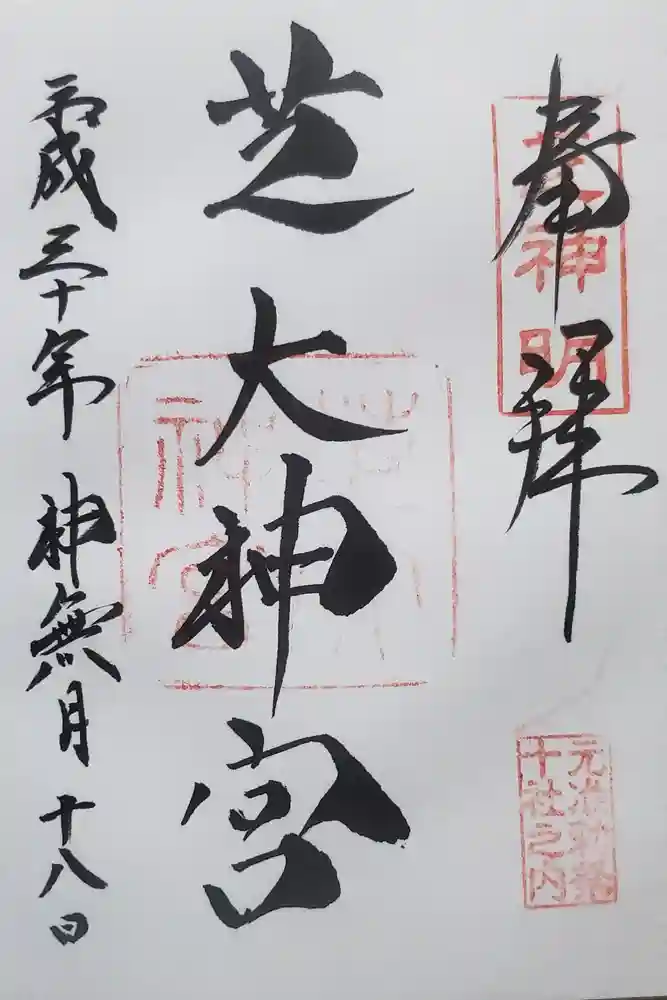 奉拝
芝神明
元准勅祭
十社之内
芝大神宮
芝大
神宮
平成三十年 神無月 十八日